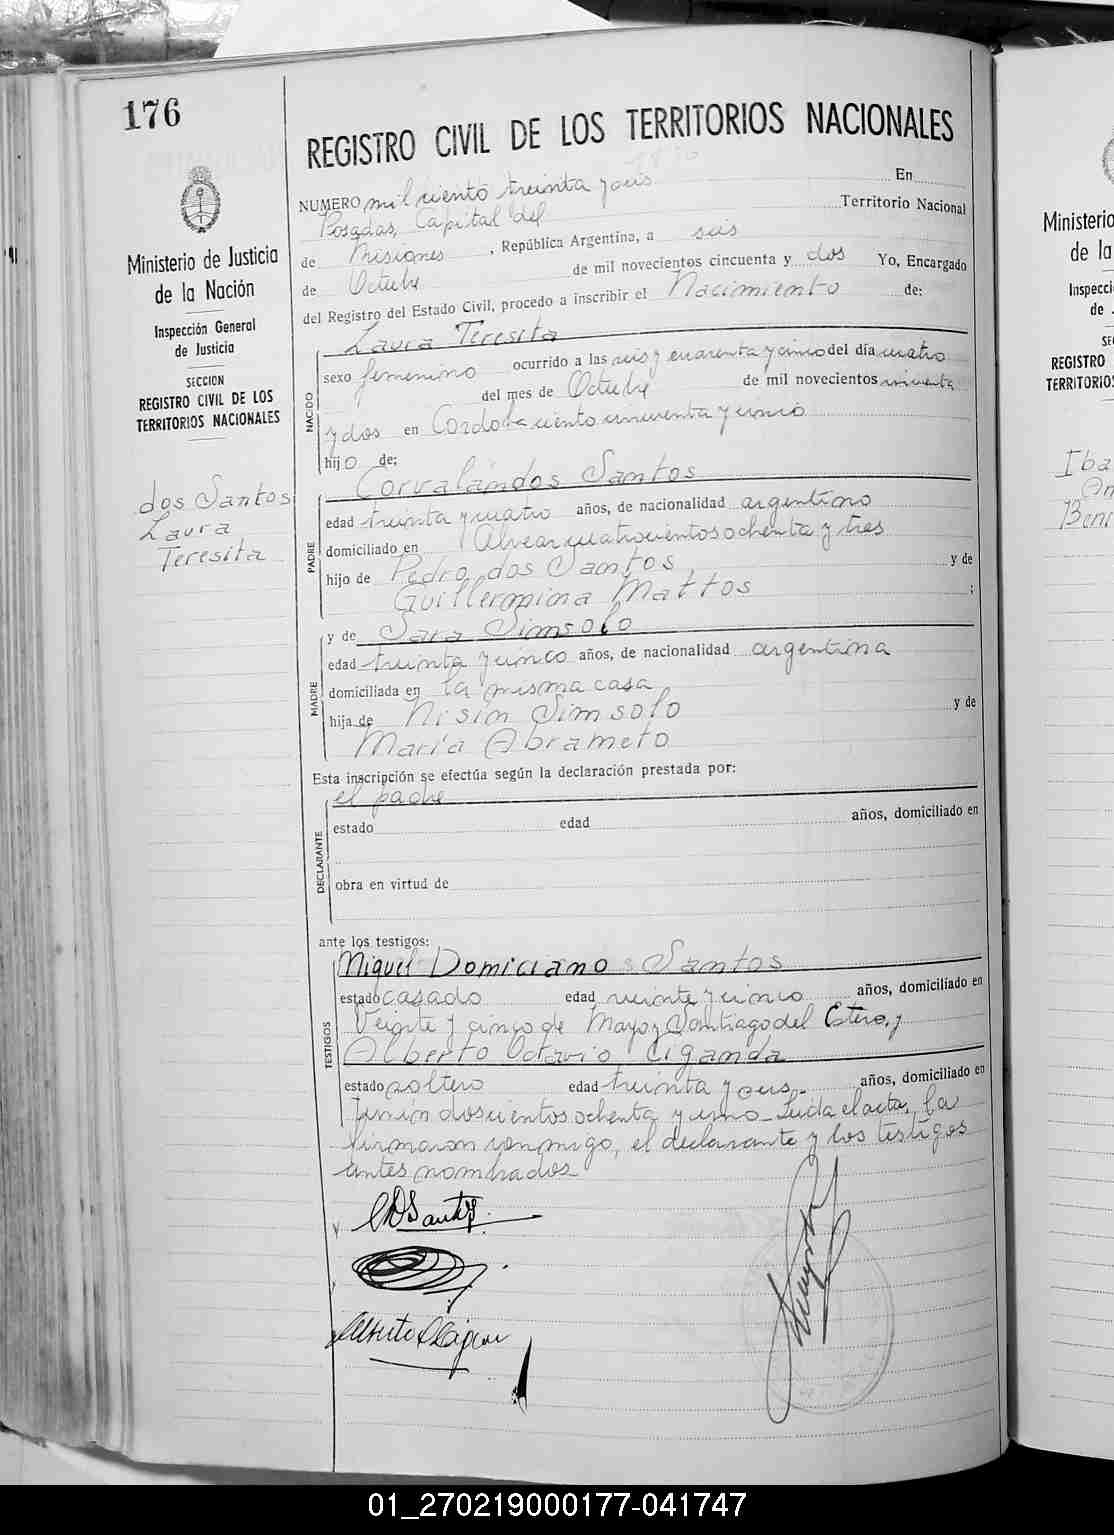 176
REGISTRO CIVIL DE LOS TERRITORIOS NACIONALES
Ministerio de Justicia
de la Nación
Inspección General
de Justicia
SECCION
REGISTRO CIVIL DE LOS
TERRITORIOS NACIONALES
dos Santos
Laura
Teresita
NUMERO mil ciento treinta y seis En
Posadas, Capital del Territorio Nacional
de Misiones, República Argentina, a seis
de Octubre de mil novecientos cincuenta y dos Yo, Encargado
del Registro del Estado Civil, procedo a inscribir el Nacimiento de:
NACIDO
Laura Teresita
sexo femenino ocurrido a las seis y cuarenta y cinco del día cuatro
del mes de Octubre de mil novecientos cincuenta
y dos en Córdoba ciento cincuenta y cinco
hijo de:
PADRE
Corvalán dos Santos
edad treinta y cuatro años, de nacionalidad argentino
domiciliado en Alvear cuatrocientos ochenta y tres
hijo de Pedro dos Santos y de
Guillermina Mattos ;
MADRE
y de Sara Simsolo
edad treinta y cinco años, de nacionalidad argentina
domiciliada en la misma casa
hija de Nisin Simsolo y de
María Abrameto
Esta inscripción se efectúa según la declaración prestada por:
DECLARANTE
el padre
estado edad años, domiciliado en
obra en virtud de
ante los testigos:
TESTIGOS
Miguel Domiciano Santos
estado casado edad veinte y cinco años, domiciliado en
Veinte y cinco de Mayo y Santiago del Estero, y
Alberto Octavio Ciganda
estado soltero edad treinta y seis años, domiciliado en
Junín doscientos ochenta y uno. Leída el acta, la
firmaron conmigo, el declarante y los testigos
antes nombrados
CDSantos
Ministerio
de la
Inspecci
de
SE
REGISTRO
TERRITORIOS
Iba
Beni
01_270219000177-041747